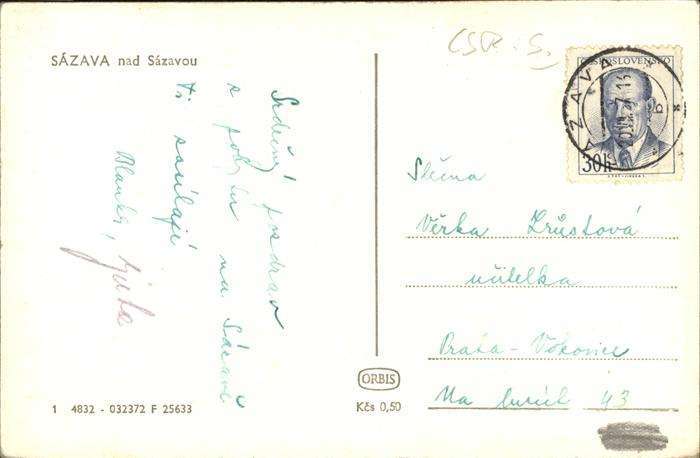 SÁZAVA nad Sázavou
ČSR - S.
ČESKOSLOVENSKO
30h
Srdečný pozdrav
z pobytu na Sázavě
Ti zasílají
Blanka,
Slečna
Věrka Krůstová
učitelka
Praha - Vokovice
Na 43
ORBIS
1 4832 - 032372 F 25633
Kčs 0,50